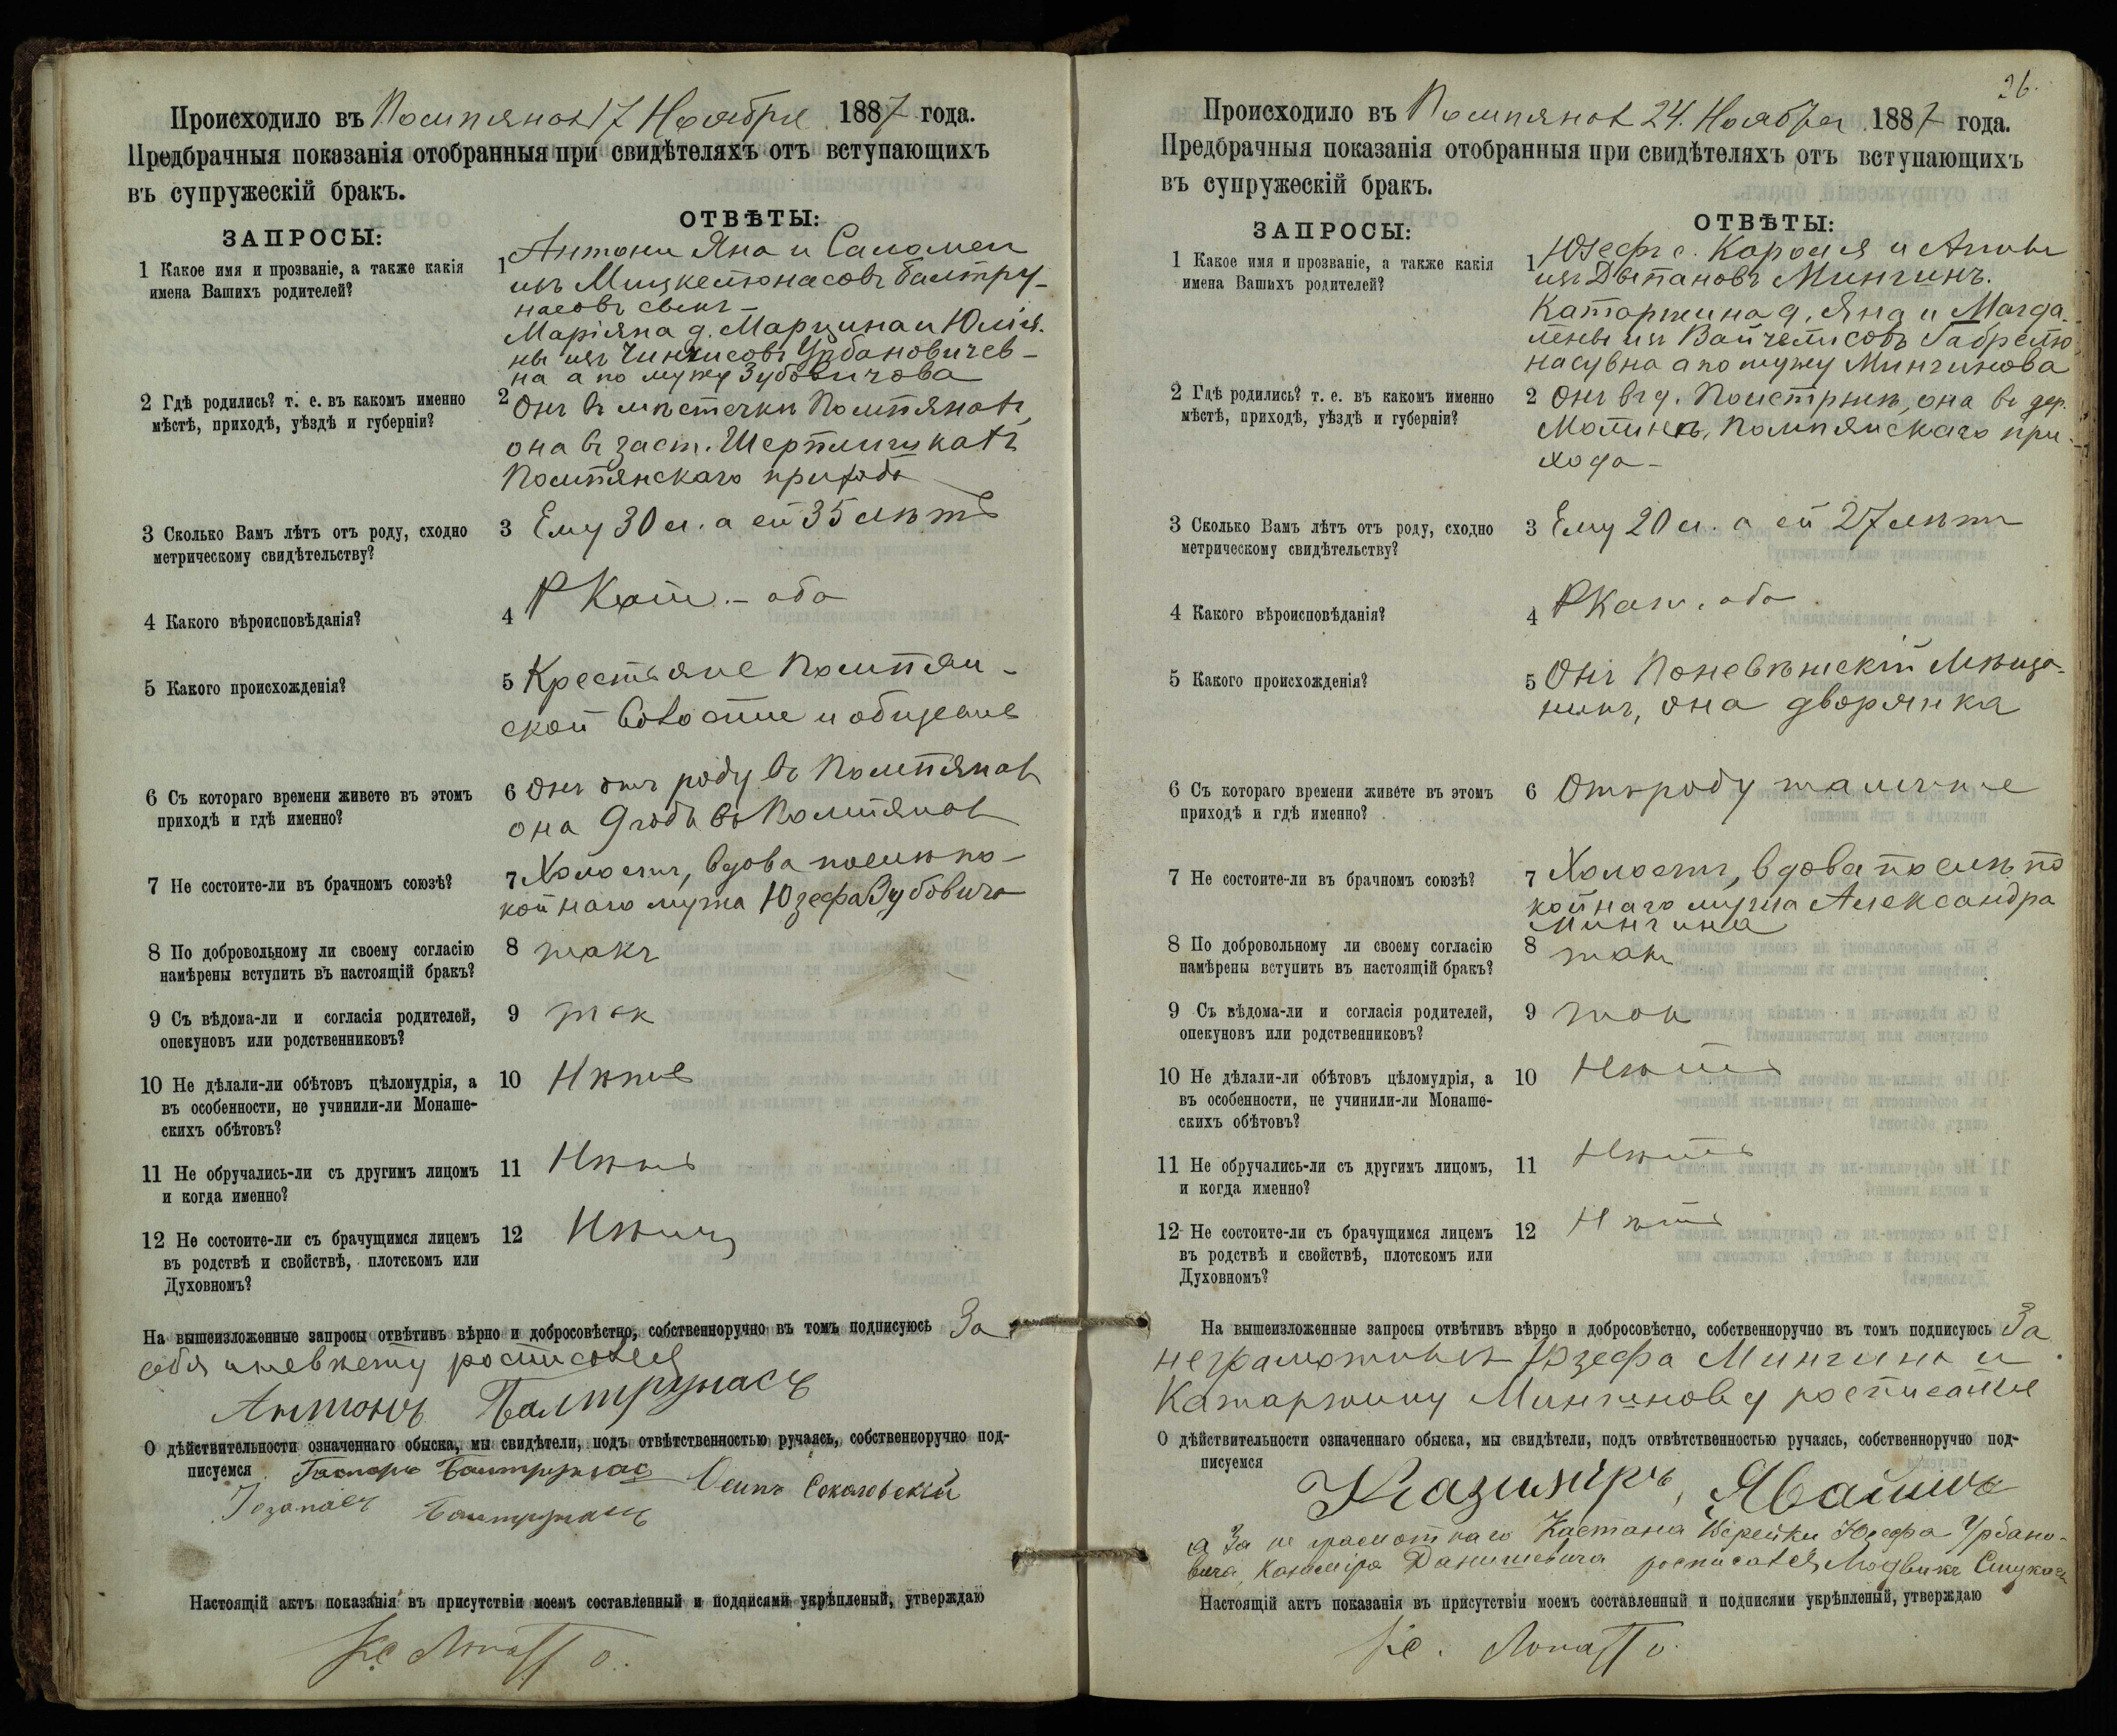 Происходило въ Помпянах 17 Ноября 1887 года.
Предбрачныя показанія отобранныя при свидѣтеляхъ отъ вступающихъ
въ супружескій бракъ.
ЗАПРОСЫ:
ОТВѢТЫ:
1 Какое имя и прозваніе, а также какія
имена Вашихъ родителей?
1 Антони Яна и Саломеи
изъ Мицкелюнасовъ Балтру-
насовъ сынъ -
Маріяна д. Марцина и Юлія-
ны изъ Урбановичев-
на а по мужу Зубовичова
2 Гдѣ родились? т. е. въ какомъ именно
мѣстѣ, приходѣ, уѣздѣ и губерніи?
2 Онъ въ мѣстечкѣ Помпянахъ,
она въ заст.
Помпянскаго прихода
3 Сколько Вамъ лѣтъ отъ роду, сходно
метрическому свидѣтельству?
3 Ему 30 л. а ей 35 лѣтъ
4 Какого вѣроисповѣданія?
4 Р Кат. - оба
5 Какого происхожденія?
5 Крестьяне Помпян-
ской волости и общества
6 Съ котораго времени живете въ этомъ
приходѣ и гдѣ именно?
6 Онъ отъ роду въ Помпянах
она 9 годъ въ Помпянах
7 Не состоите-ли въ брачномъ союзѣ?
7 Холостъ, вдова послѣ по-
койнаго мужа Юзефа Зубовича
8 По добровольному ли своему согласію
намѣрены вступить въ настоящій бракъ?
8 такъ
9 Съ вѣдома-ли и согласія родителей,
опекуновъ или родственниковъ?
9 так
10 Не дѣлали-ли обѣтовъ цѣломудрія, а
въ особенности, не учинили-ли Монаше-
скихъ обѣтовъ?
10 Нѣтъ
11 Не обручались-ли съ другимъ лицомъ
и когда именно?
11 Нѣтъ
12 Не состоите-ли съ брачущимся лицемъ
въ родствѣ и свойствѣ, плотскомъ или
Духовномъ?
12 Нѣтъ
На вышеизложенные запросы отвѣтивъ вѣрно и добросовѣстно, собственноручно въ томъ подписуюсь За
себя и невѣсту росписался
Антонъ Балтрунасъ
О дѣйствительности означеннаго обыска, мы свидѣтели, подъ отвѣтственностью ручаясь, собственноручно под-
писуемся Балтрунас Осипъ Соколовскій
Балтрунасъ
Настоящій актъ показанія въ присутствіи моемъ составленный и подписями укрѣпленый, утверждаю
Кс
26.
Происходило въ Помпянах 24. Ноября 1887 года.
Предбрачныя показанія отобранныя при свидѣтеляхъ отъ вступающихъ
въ супружескій бракъ.
ЗАПРОСЫ:
ОТВѢТЫ:
1 Какое имя и прозваніе, а также какія
имена Вашихъ родителей?
1 Юзефъ с. Кароля и Анны
изъ Мингинъ.
Катаржина д. Яна и Магда-
лены изъ Вайчелисовъ Габрелю-
насувна а по мужу Мингинова
2 Гдѣ родились? т. е. въ какомъ именно
мѣстѣ, приходѣ, уѣздѣ и губерніи?
2 Онъ въ д. она въ дер.
Помпянскаго при-
хода -
3 Сколько Вамъ лѣтъ отъ роду, сходно
метрическому свидѣтельству?
3 Ему 20 л. а ей 27 лѣтъ
4 Какого вѣроисповѣданія?
4 Р Кат. оба
5 Какого происхожденія?
5 Онъ Поневѣжскій Мѣща-
нинъ, она дворянка
6 Съ котораго времени живете въ этомъ
приходѣ и гдѣ именно?
6 Отъ роду
7 Не состоите-ли въ брачномъ союзѣ?
7 Холостъ, вдова послѣ по
койнаго мужа Александра
Мингина
8 По добровольному ли своему согласію
намѣрены вступить въ настоящій бракъ?
8 такъ
9 Съ вѣдома-ли и согласія родителей,
опекуновъ или родственниковъ?
9 так
10 Не дѣлали-ли обѣтовъ цѣломудрія, а
въ особенности, не учинили-ли Монаше-
скихъ обѣтовъ?
10 Нѣтъ
11 Не обручались-ли съ другимъ лицомъ,
и когда именно?
11 Нѣтъ
12 Не состоите-ли съ брачущимся лицемъ
въ родствѣ и свойствѣ, плотскомъ или
Духовномъ?
12 Нѣтъ
На вышеизложенные запросы отвѣтивъ вѣрно и добросовѣстно, собственноручно въ томъ подписуюсь За
неграмотныхъ Юзефа Мингина и
Катаржину Мингинову росписался
О дѣйствительности означеннаго обыска, мы свидѣтели, подъ отвѣтственностью ручаясь, собственноручно под-
писуемся
Казиміръ Явайшъ
а За не грамотнаго Юзефа Урбано-
вича, Казиміра Данишевича росписался Людвикъ
Настоящій актъ показанія въ присутствіи моемъ составленный и подписями укрѣпленый, утверждаю
Кс.